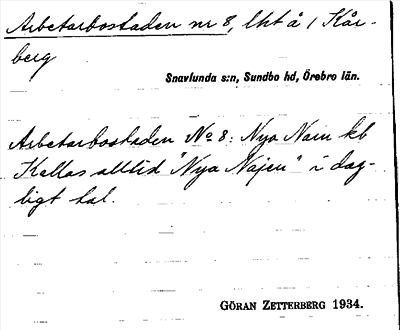 Arbetarbostaden nr 8, lht å 1 Kår-
berg
Snavlunda s:n, Sundbo hd, Örebro län.
Arbetarbostaden No 8: Nya Narn kb
Kallas alltid "Nya Najen" i dag-
ligt tal.
GÖRAN ZETTERBERG 1934.